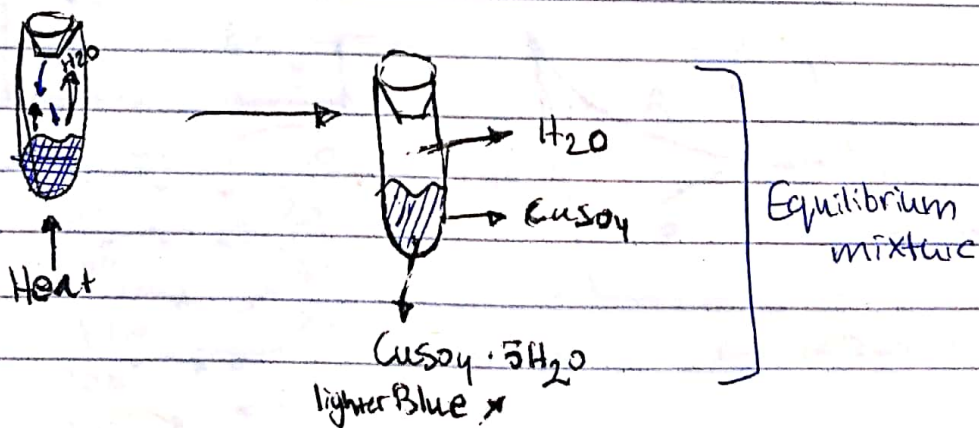 H2O
Heat
H2O
CuSO4
CuSO4 · 5H2O
lighter Blue
Equilibrium
mixture